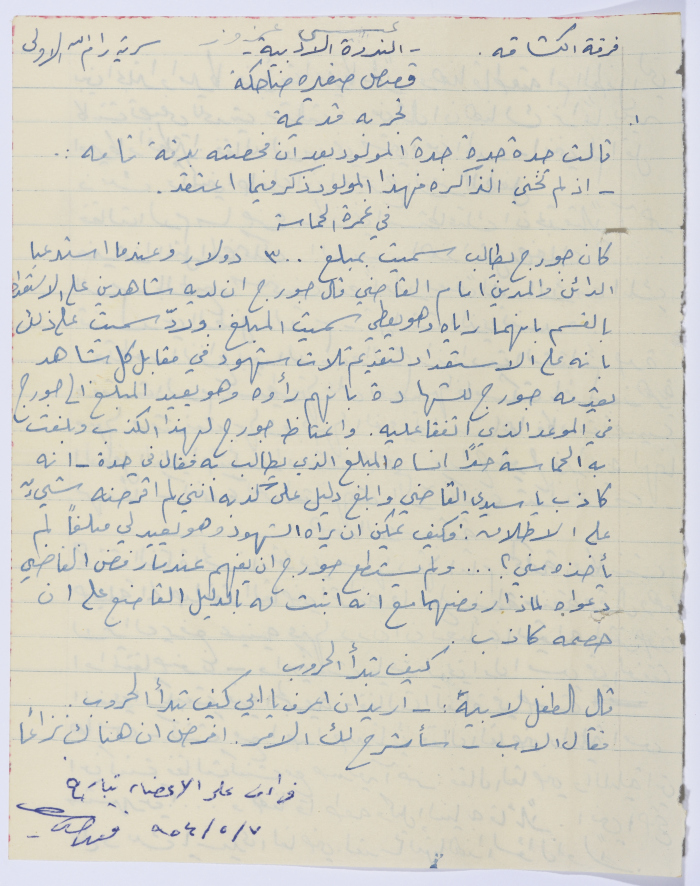 عيسى عزوز
فرقة الكشافه. - الندوة الادبية - سرية رام الله الاولى
قصص صغيره ضاحكة
١. تجربه قديمة
قالت جدة جدة المولود بعد ان فحصته بدقة تامه :.
- اذ لم تخني الذاكره فهذا المولود ذكر فيما اعتقد.
في غمرة الحماسة
كان جورج يطالب سميث بمبلغ ٣٠٠ دولار وعندما استدعيا
الدائن والمدين امام القاضي قال جورج ان لديه شاهدين على الاستعداد
بالقسم بانهما راياه وهو يعطي سميث المبلغ. وردّ سميث على ذلك
بانه على الاستعداد لتقديم ثلاث شهود في مقابل كل شاهد
يقدمه جورج للشهادة بانهم رأوه وهو يعيد المبلغ الى جورج
في الموعد الذي اتفقا عليه. واغتاظ جورج لهذا الكذب وبلغت
به الحماسة حدًا انساه المبلغ الذي يطالب به فقال في حدة - انه
كاذب يا سيدي القاضي وابلغ دليل على كذبه انني لم اقرضه شيءً
على الاطلاق. فكيف يمكن ان يراه الشهود وهو يعيد لي مبلغاً لم
يأخذه مني؟ .... ولم يستطع جورج ان يفهم عندما رفض القاضي
دعواه لماذا رفضها مع انه اثبت له بالدليل القاطع على ان
خصمه كاذب.
كيف تبدأ الحروب
قال الطفل لابيه: - اريد ان اعرف يا ابي كيف تبدأ الحروب.
فقال الاب - سأشرح لك الامر: افرض ان هناك نزاعًا
قرأت على الاعضاء بتاريخ
٩٥٤/٥/٧